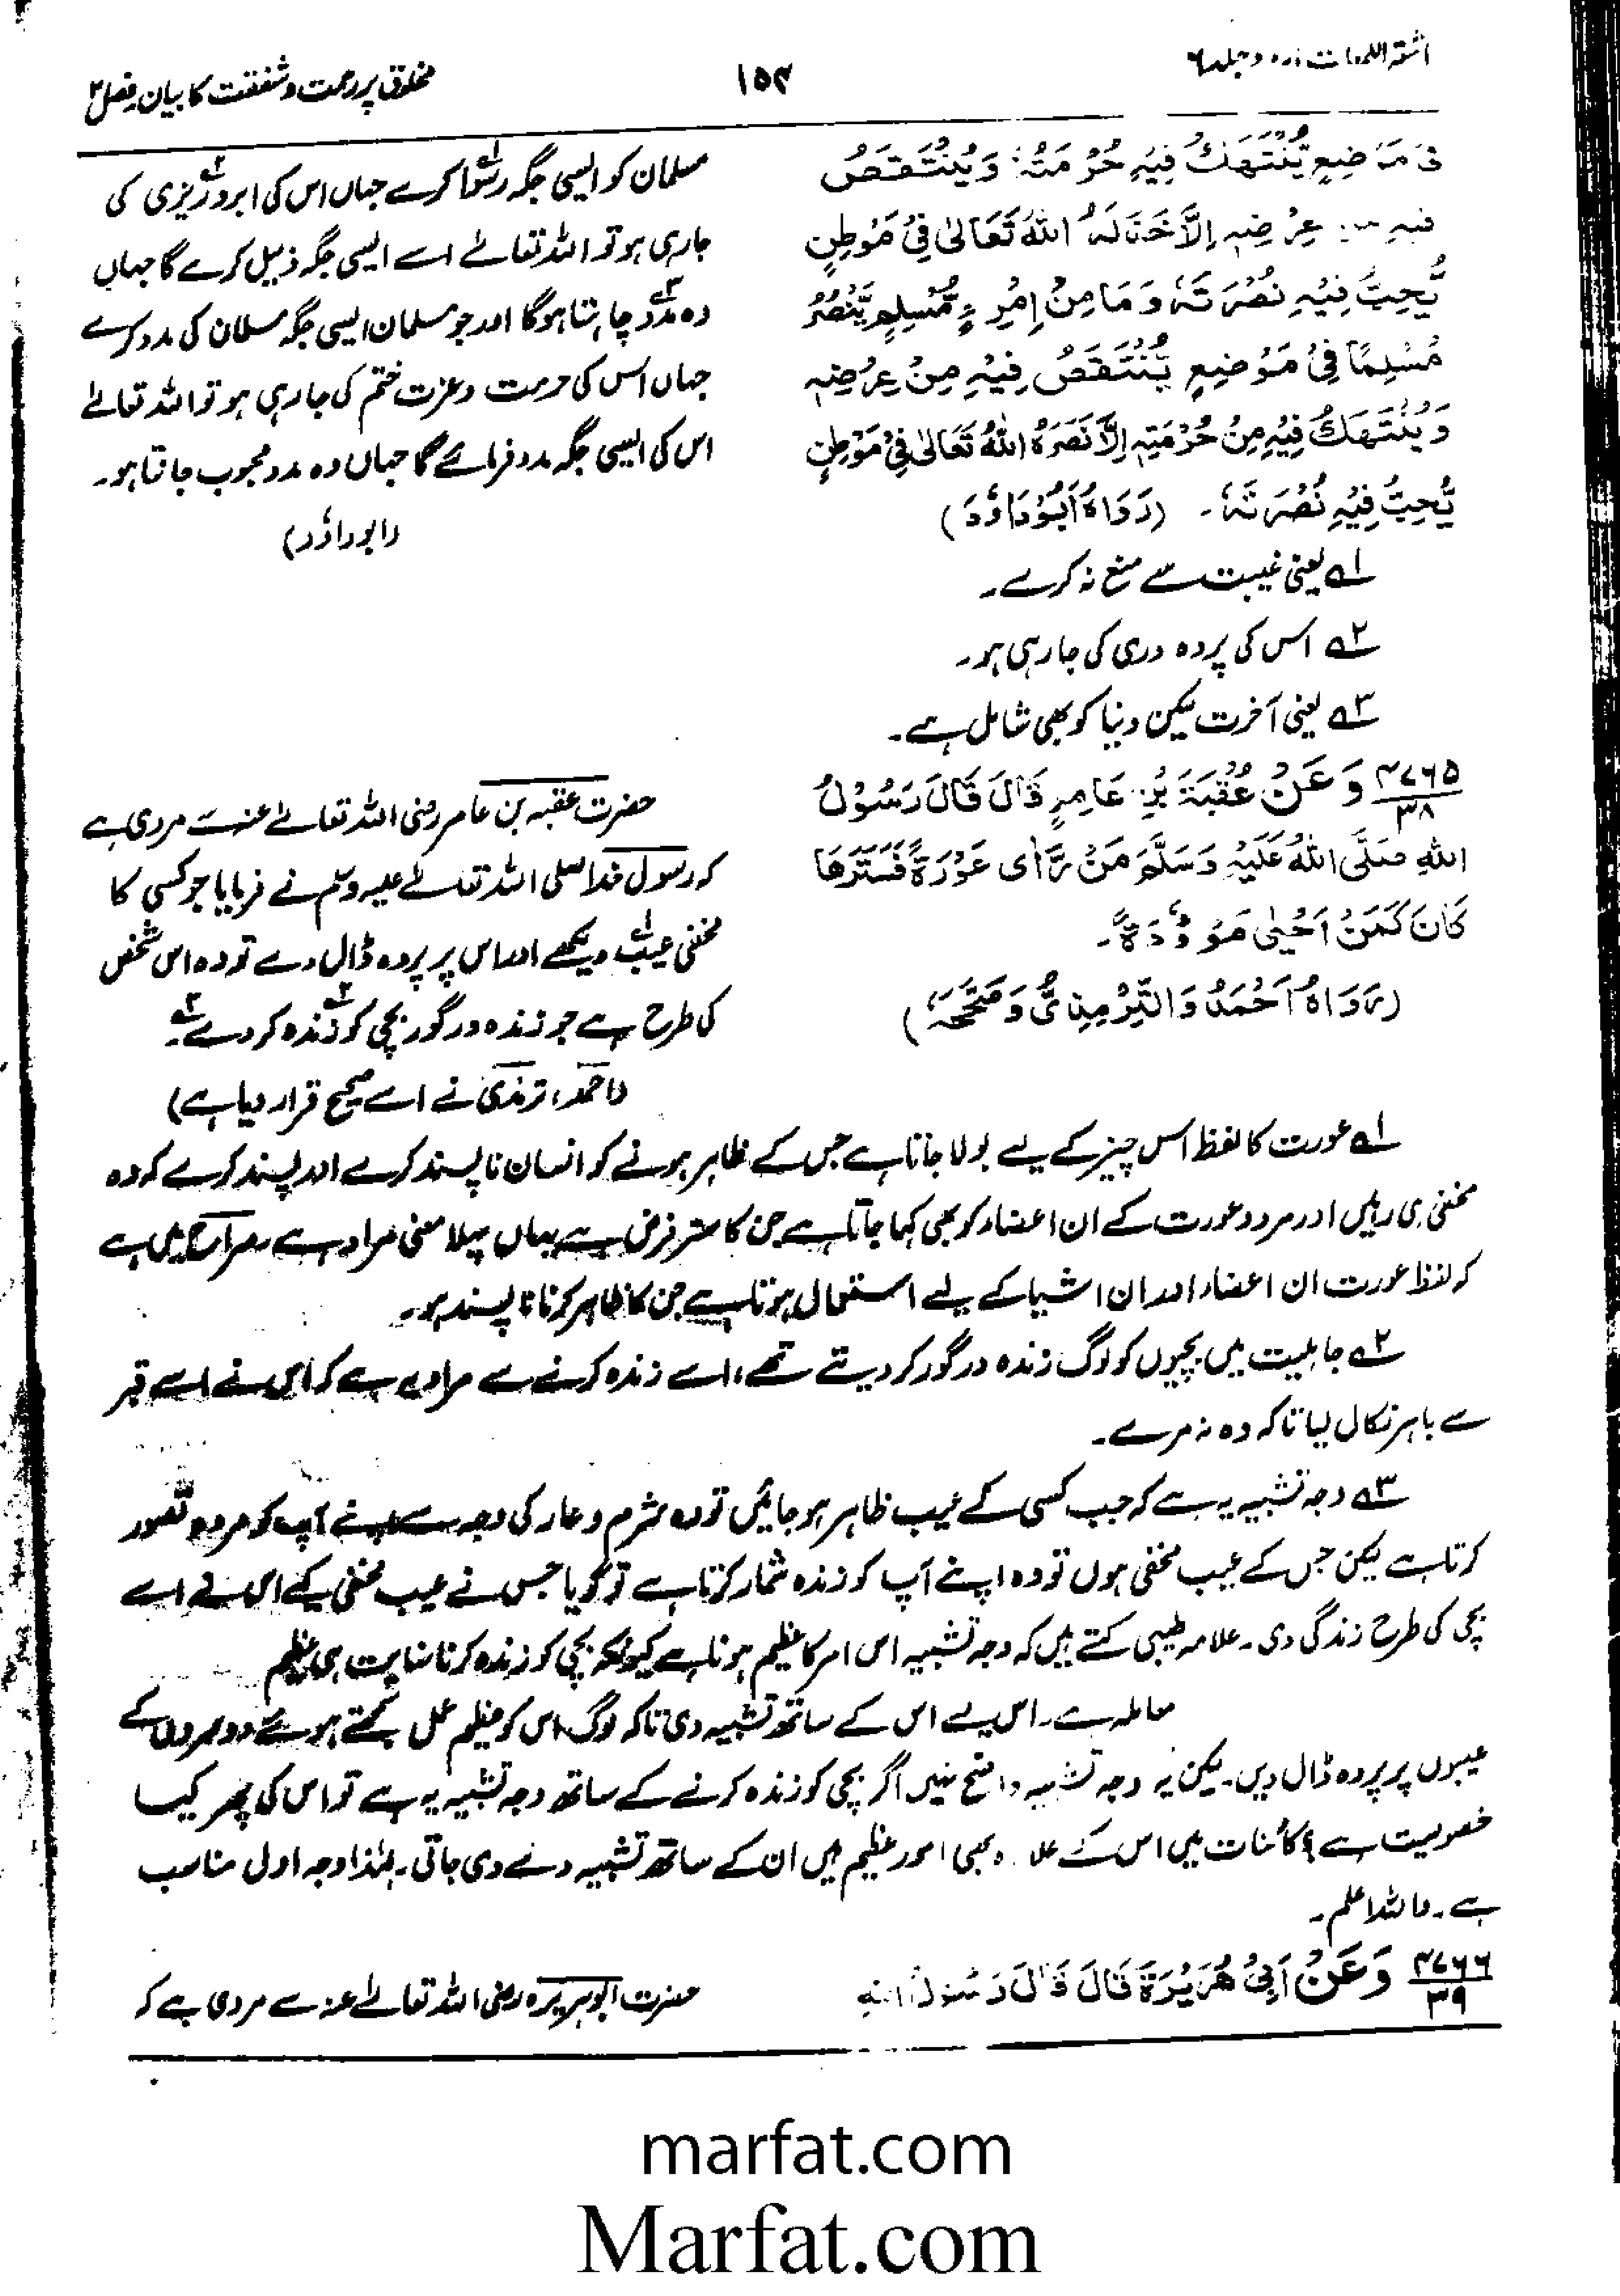 اشعۃ اللمعات اردو جلد ۶
۱۵۳
مخلوق پر رحمت و شفقت کا بیان فصل ۲
فِیْ مَوْضِعٍ یُّنْتَهَكُ فِیْهِ حُرْمَتُهٗ وَیُنْتَقَصُ
فِیْهِ مِنْ عِرْضِهٖ اِلَّا خَذَلَهُ اللّٰهُ تَعَالٰی فِیْ مَوْطِنٍ
یُّحِبُّ فِیْهِ نُصْرَتَهٗ وَمَا مِنْ اِمْرِءٍ مُّسْلِمٍ یَّنْصُرُ
مُسْلِمًا فِیْ مَوْضِعٍ یُّنْتَقَصُ فِیْهِ مِنْ عِرْضِهٖ
وَیُنْتَهَكُ فِیْهِ مِنْ حُرْمَتِهٖ اِلَّا نَصَرَهُ اللّٰهُ تَعَالٰی فِیْ مَوْطِنٍ
یُّحِبُّ فِیْهِ نُصْرَتَهٗ۔ (رَوَاهُ اَبُوْدَاوٗدَ)
مسلمان کو ایسی جگہ رسوا۱ کرے جہاں اس کی ابرو ریزی۲ کی
جارہی ہو تو اللہ تعالےٰ اسے ایسی جگہ ذلیل کرے گا جہاں
وہ مدد۳ چاہتا ہوگا اور جو مسلمان ایسی جگہ مسلمان کی مدد کرے
جہاں اس کی حرمت و عزت ختم کی جارہی ہو تو اللہ تعالےٰ
اس کی ایسی جگہ مدد فرمائے گا جہاں وہ مدد محبوب جانتا ہو۔
(ابوداؤد)
۱ یعنی غیبت سے منع نہ کرے۔
۲ اس کی پردہ دری کی جارہی ہو۔
۳ یعنی آخرت لیکن دنیا کو بھی شامل ہے۔
۴۷۶۵ / ۳۸ وَعَنْ عُقْبَةَ بْنِ عَامِرٍ قَالَ قَالَ رَسُوْلُ
اللّٰهِ صَلَّی اللّٰهُ عَلَیْهِ وَسَلَّمَ مَنْ رَّاٰی عَوْرَةً فَسَتَرَهَا
کَانَ کَمَنْ اَحْیٰی مَوْءُوْدَةً۔
(رَوَاهُ اَحْمَدُ وَالتِّرْمِذِیُّ وَصَحَّحَهٗ)
حضرت عقبہ بن عامر رضی اللہ تعالےٰ عنہ سے مروی ہے
کہ رسول خدا صلی اللہ تعالےٰ علیہ وسلم نے فرمایا جو کسی کا
مخفی عیب۱ دیکھے اور اس پر پردہ ڈال دے تو وہ اس شخص
کی طرح ہے جو زندہ درگور بچی کو زندہ۲ کردے۳۔
(احمد، ترمذی نے اسے صحیح قرار دیا ہے)
۱ عورت کا لفظ اس چیز کے لیے بولا جاتا ہے جس کے ظاہر ہونے کو انسان ناپسند کرے اور پسند کرے کہ وہ
مخفی ہی رہیں اور مرد و عورت کے ان اعضاء کو بھی کہا جاتا ہے جن کا ستر فرض ہے یہاں پہلا معنی مراد ہے، صراح میں ہے
کہ لفظ عورت ان اعضاء اور ان اشیا کے لیے استعمال ہوتا ہے جن کا ظاہر کرنا ناپسند ہو۔
۲ جاہلیت میں بچیوں کو لوگ زندہ درگور کر دیتے تھے، اسے زندہ کرنے سے مراد یہ ہے کہ اس نے اسے قبر
سے باہر نکال لیا تاکہ وہ نہ مرے۔
۳ وجہ تشبیہ یہ ہے کہ جب کسی کے عیب ظاہر ہو جائیں تو وہ شرم و عار کی وجہ سے اپنے آپ کو مردہ تصور
کرتا ہے لیکن جس کے عیب مخفی ہوں تو وہ اپنے آپ کو زندہ شمار کرتا ہے تو گویا جس نے عیب مخفی کیے اس نے اسے
بچی کی طرح زندگی دی۔ علامہ طیبی کہتے ہیں کہ وجہ تشبیہ اس امر کا عظیم ہونا ہے کیونکہ بچی کو زندہ کرنا نہایت ہی عظیم
معاملہ ہے۔ اس لیے اس کے ساتھ تشبیہ دی تاکہ لوگ اس کو عظیم عمل سمجھتے ہوئے دوسروں کے
عیبوں پر پردہ ڈال دیں۔ لیکن یہ وجہ تشبیہ واضح نہیں اگر بچی کو زندہ کرنے کے ساتھ وجہ تشبیہ یہ ہے تو اس کی پھر کیا
خصوصیت ہے؟ کائنات میں اس کے علاوہ بھی امور عظیم ہیں ان کے ساتھ تشبیہ دے دی جاتی۔ لہٰذا وجہ اول مناسب
ہے۔ واللہ اعلم۔
۴۷۶۶ / ۳۹ وَعَنْ اَبِیْ هُرَیْرَةَ قَالَ قَالَ رَسُوْلُ اللّٰهِ
حضرت ابوہریرہ رضی اللہ تعالےٰ عنہ سے مروی ہے کہ
marfat.com
Marfat.com